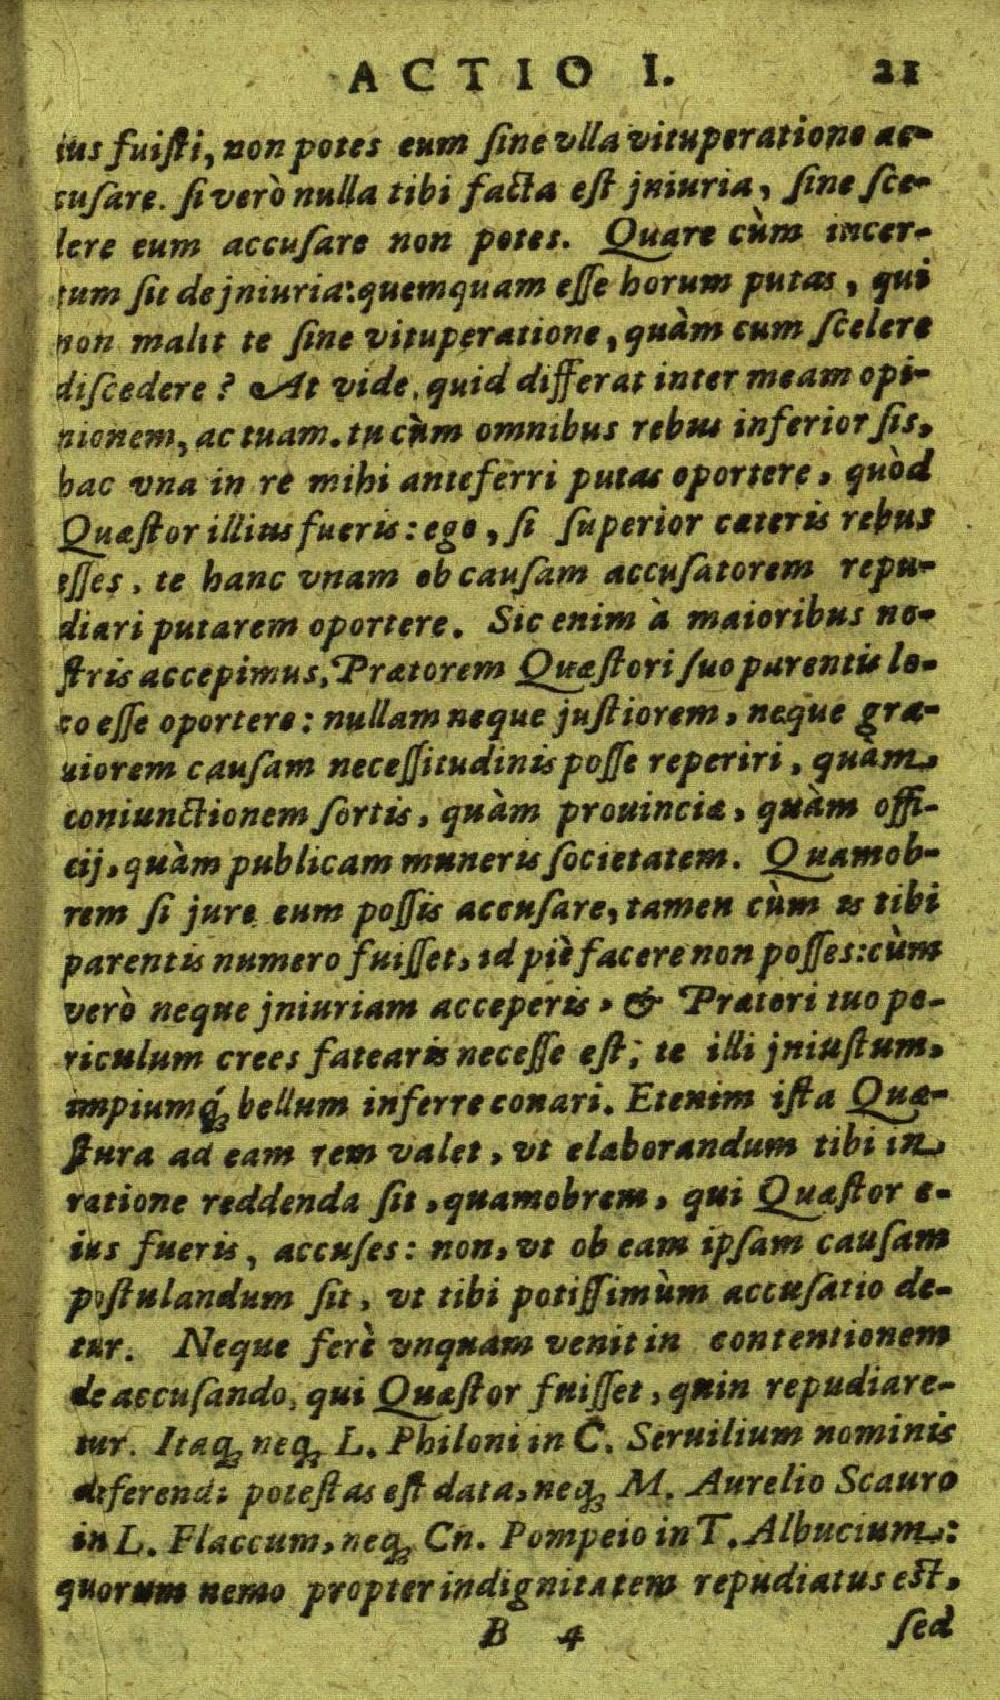 ACTIO I. 21
ius fuiſti, non potes eum ſine vlla vituperatione ac-
cuſare. ſi verò nulla tibi facta eſt jniuria, ſine ſce-
lere eum accuſare non potes. Quare cùm incer-
tum ſit de jniuria: quemquam eſſe horum putas, qui
non malit te ſine vituperatione, quàm cum ſcelere
diſcedere? At vide, quid differat inter meam opi-
nionem, ac tuam. tu cùm omnibus rebus inferior ſis,
hac vna in re mihi anteferri putas oportere, quòd
Quæſtor illius fueris: ego, ſi ſuperior cæteris rebus
eſſes, te hanc vnam ob cauſam accuſatorem repu-
diari putarem oportere. Sic enim à maioribus no-
ſtris accepimus, Prætorem Quæſtori ſuo parentis lo-
co eſſe oportere: nullam neque juſtiorem, neque gra-
uiorem cauſam neceſſitudinis poſſe reperiri, quàm
coniunctionem ſortis, quàm prouinciæ, quàm offi-
cij, quàm publicam muneris ſocietatem. Quamob-
rem ſi jure eum poſſis accuſare, tamen cùm is tibi
parentis numero fuiſſet, id piè facere non poſſes: cùm
verò neque jniuriam acceperis, & Prætori tuo pe-
riculum crees fatearis neceſſe eſt; te illi jniuſtum,
impiumq́; bellum inferre conari. Etenim iſta Quæ-
ſtura ad eam rem valet, vt elaborandum tibi in
ratione reddenda ſit, quamobrem, qui Quæſtor e-
ius fueris, accuſes: non, vt ob eam ipſam cauſam
poſtulandum ſit, vt tibi potiſſimùm accuſatio de-
tur. Neque ferè vnquam venit in contentionem
de accuſando, qui Quæſtor fuiſſet, quin repudiare-
tur. Itaq; neq; L. Philoni in C. Seruilium nominis
deferendi poteſtas eſt data, neq; M. Aurelio Scauro
in L. Flaccum, neq; Cn. Pompeio in T. Albucium:
quorum nemo propter indignitatem repudiatus eſt,
B 4 ſed